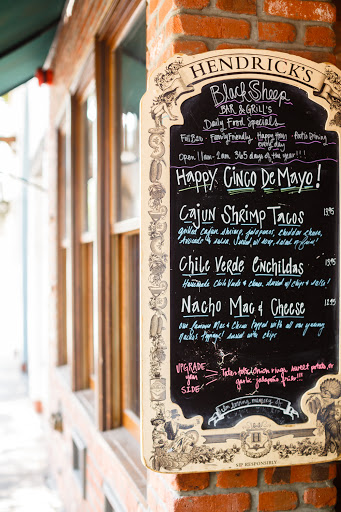 HENDRICK'S
Black Sheep
BAR & GRILL'S
Daily Food Specials
Full Bar Family Friendly Happy Hour Patio Dining
every day
Open 11am-2am 365 days of the year!!!
Happy Cinco De Mayo!
Cajun Shrimp Tacos 13.95
grilled cajun shrimp, jalapenos, cheddar cheese,
avocado & salsa. Served w/ rice, salad or fries!
Chile Verde Enchildas 13.95
Homemade Chile Verde & cheese, served w/ chips & salsa!
Nacho Mac & Cheese 12.95
our famous Mac & Cheese topped with all our yummy
Nachos toppings! served with chips
UPGRADE
your
SIDE
Tater tots, Onion rings, sweet potato, or
garlic jalapeño fries!!!
in loving memory of
SIP RESPONSIBLY